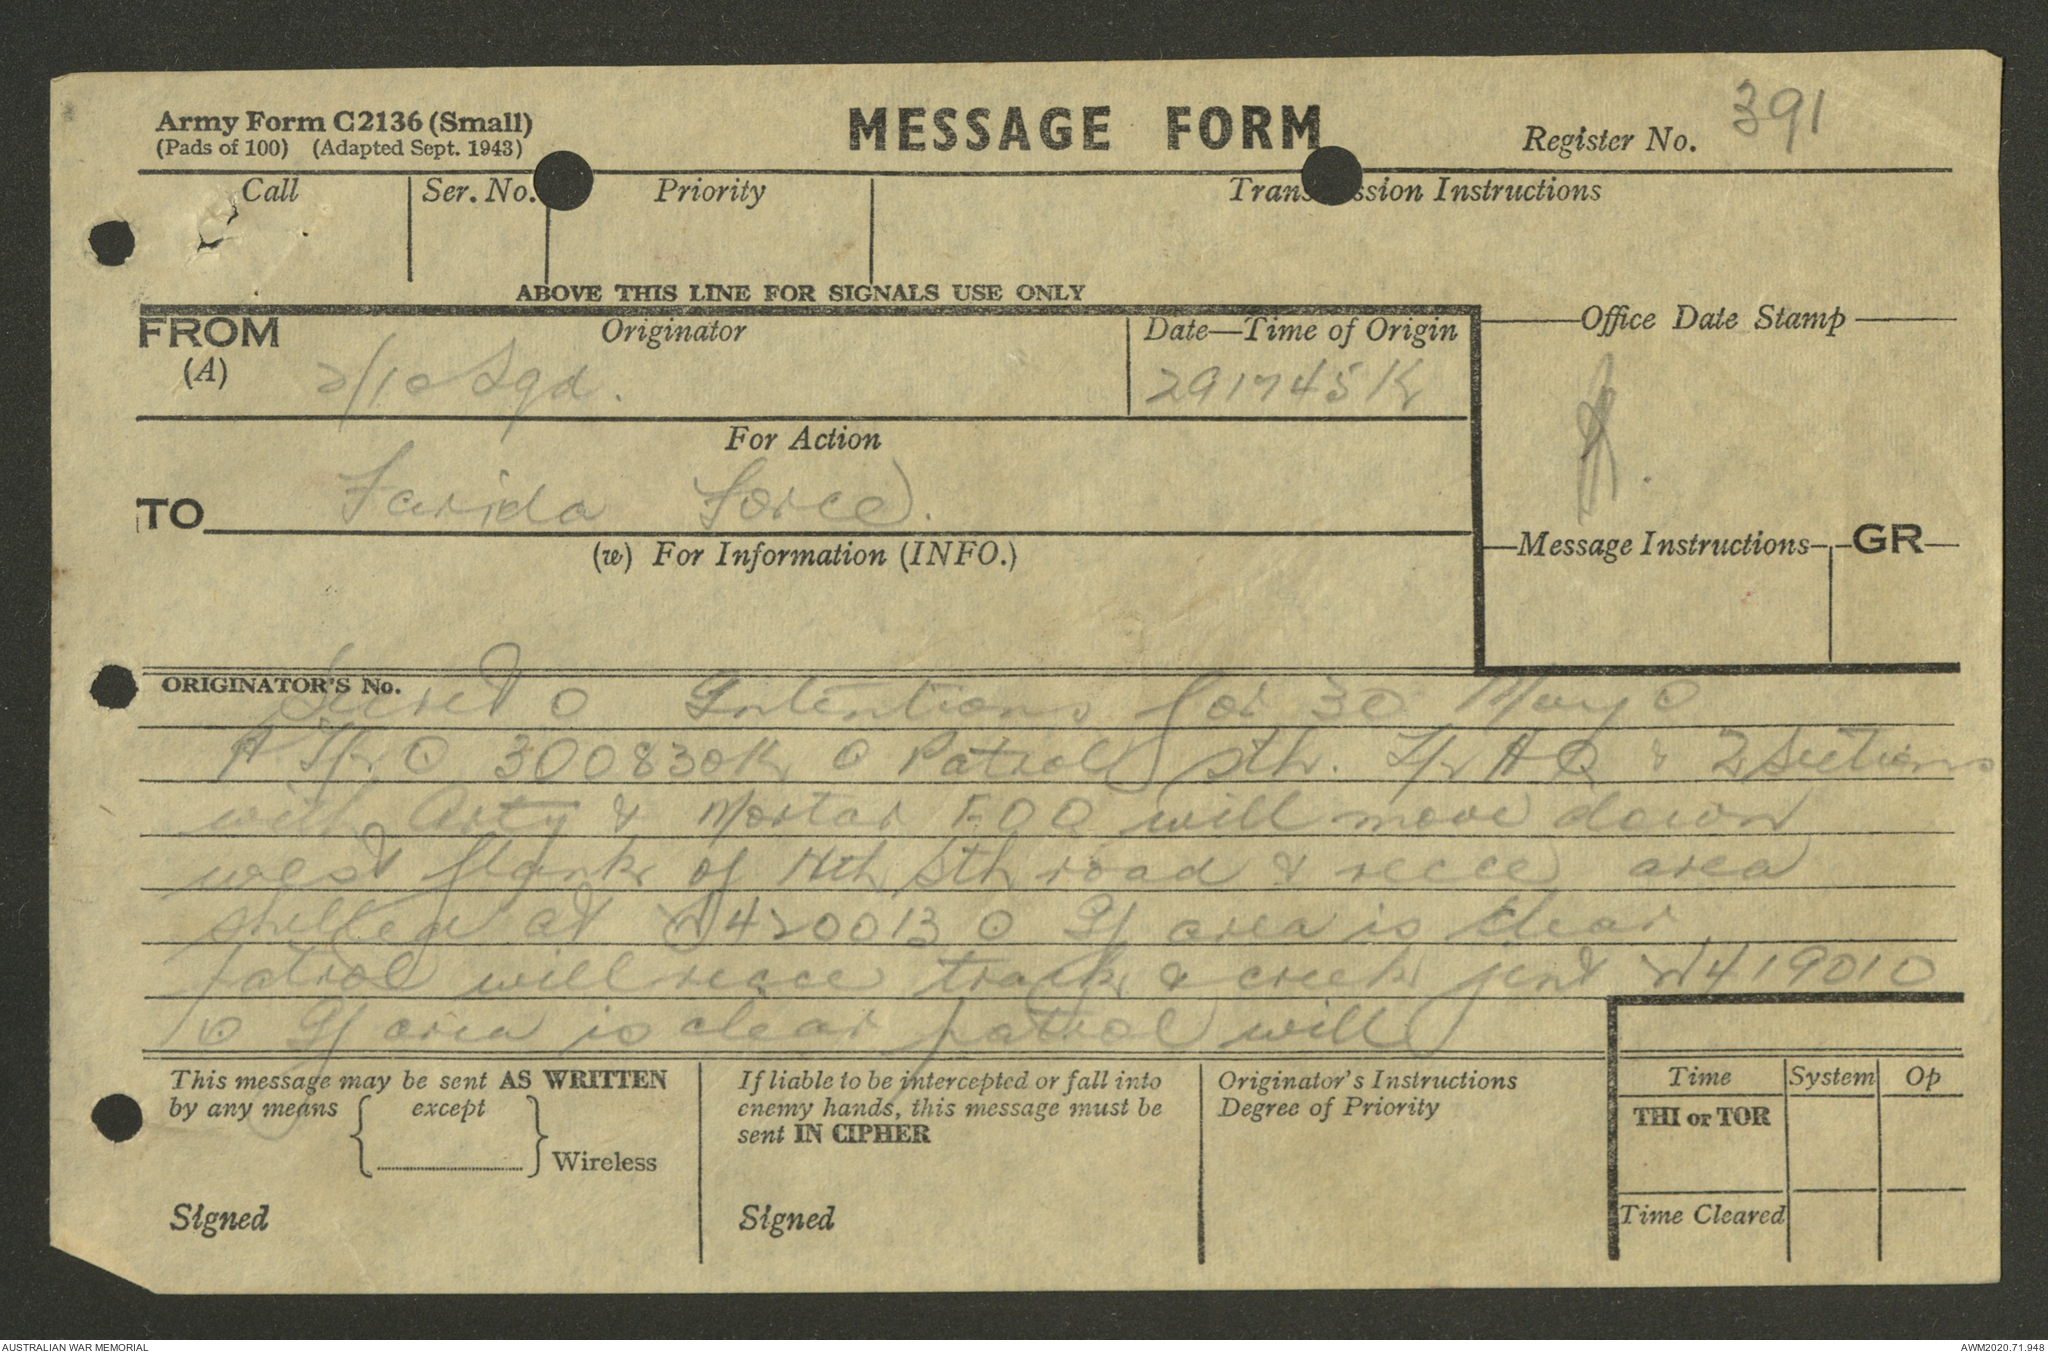 Army Form C2136 (Small)
(Pads of 100) (Adapted Sept. 1943)
MESSAGE FORM
Register No. 391
Call
Ser. No.
Priority
Transmission Instructions
ABOVE THIS LINE FOR SIGNALS USE ONLY
FROM
(A)
Originator
2/10 Sqd.
Date—Time of Origin
291745K
Office Date Stamp
For Action
TO
Farida Force.
(w) For Information (INFO.)
Message Instructions
GR
ORIGINATOR'S No.
Secret O Intentions for 30 May O
A Tp. O 300830K O Patrol Sth. Tp HQ & 2 Sections
with Arty & Mortar FOO will move down
west flank of Nth Sth road & recce area
shelled at W420013 O If area is clear
patrol will recce track & creek junt W419010
O If area is clear patrol will
This message may be sent AS WRITTEN
by any means except
Wireless
Signed
If liable to be intercepted or fall into
enemy hands, this message must be
sent IN CIPHER
Signed
Originator's Instructions
Degree of Priority
Time
System
Op
THI or TOR
Time Cleared
AUSTRALIAN WAR MEMORIAL
AWM2020.71.948